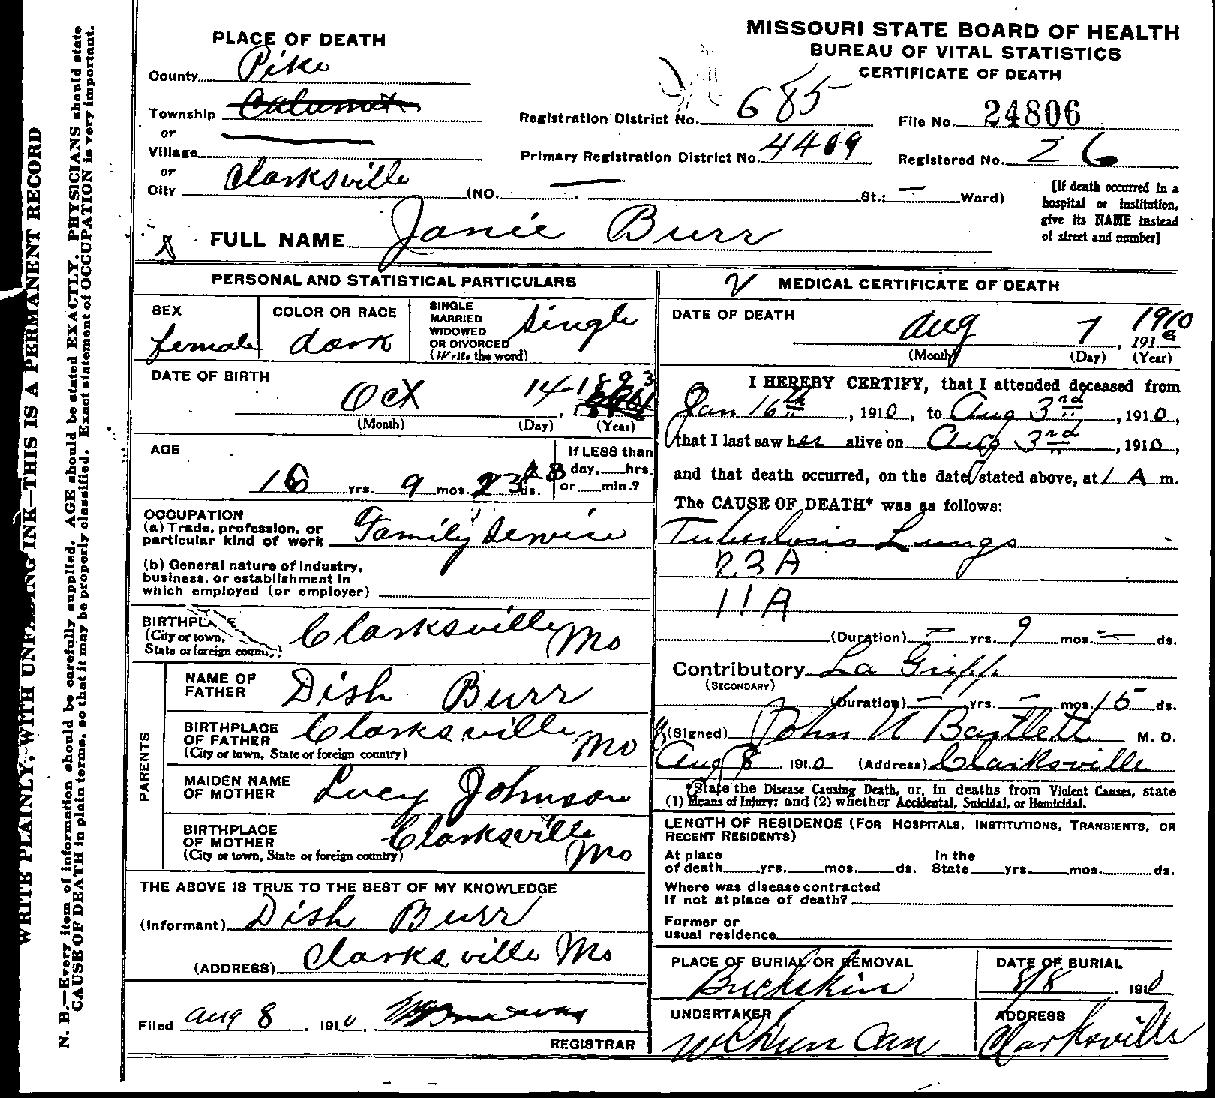 MISSOURI STATE BOARD OF HEALTH
BUREAU OF VITAL STATISTICS
CERTIFICATE OF DEATH
PLACE OF DEATH
County Pike
Township Calumet
or
Village
or
City Clarksville (NO. — St.; — Ward)
Registration District No. 685 File No. 24806
Primary Registration District No. 4409 Registered No. 26
[If death occurred in a
hospital or institution,
give its NAME instead
of street and number]
FULL NAME Janie Burr
PERSONAL AND STATISTICAL PARTICULARS
SEX
female
COLOR OR RACE
dark
SINGLE
MARRIED
WIDOWED
OR DIVORCED
(Write the word)
Single
DATE OF BIRTH
Oct 14 1893
(Month) (Day) (Year)
AGE
16 yrs. 9 mos. 23 ds.
If LESS than
day, hrs.
or min.?
OCCUPATION
(a) Trade, profession, or
particular kind of work Family Service
(b) General nature of industry,
business, or establishment in
which employed (or employer)
BIRTHPLACE
(City or town,
State or foreign country)
Clarksville Mo
PARENTS
NAME OF
FATHER Dish Burr
BIRTHPLACE
OF FATHER
(City or town, State or foreign country)
Clarksville Mo
MAIDEN NAME
OF MOTHER Lucy Johnson
BIRTHPLACE
OF MOTHER
(City or town, State or foreign country)
Clarksville Mo
THE ABOVE IS TRUE TO THE BEST OF MY KNOWLEDGE
(Informant) Dish Burr
(ADDRESS) Clarksville Mo
Filed Aug 8, 1910
REGISTRAR
MEDICAL CERTIFICATE OF DEATH
DATE OF DEATH
Aug 7, 1910
(Month) (Day) (Year)
I HEREBY CERTIFY, that I attended deceased from
Jan 16th, 1910, to Aug 3rd, 1910,
that I last saw her alive on Aug 3rd, 1910
and that death occurred, on the date stated above, at 1 A m.
The CAUSE OF DEATH* was as follows:
Tuberlosis Lungs
23A
11A
(Duration) — yrs. 9 mos. — ds.
Contributory La Gripp
(SECONDARY)
(Duration) — yrs. — mos. 15 ds.
(Signed) John N Bartlett M. D.
Aug 8 1910 (Address) Clarksville
*State the Disease Causing Death, or, in deaths from Violent Causes, state
(1) Means of Injury; and (2) whether Accidental, Suicidal, or Homicidal.
LENGTH OF RESIDENCE (FOR HOSPITALS, INSTITUTIONS, TRANSIENTS, OR
RECENT RESIDENTS)
At place In the
of death yrs. mos. ds. State yrs. mos. ds.
Where was disease contracted
if not at place of death?
Former or
usual residence
PLACE OF BURIAL OR REMOVAL
Buckskin
DATE OF BURIAL
8/8 1910
UNDERTAKER
ADDRESS
Clarksville
WRITE PLAINLY, WITH UNFADING INK—THIS IS A PERMANENT RECORD
N. B.—Every item of information should be carefully supplied. AGE should be stated EXACTLY. PHYSICIANS should state
CAUSE OF DEATH in plain terms, so that it may be properly classified. Exact statement of OCCUPATION is very important.